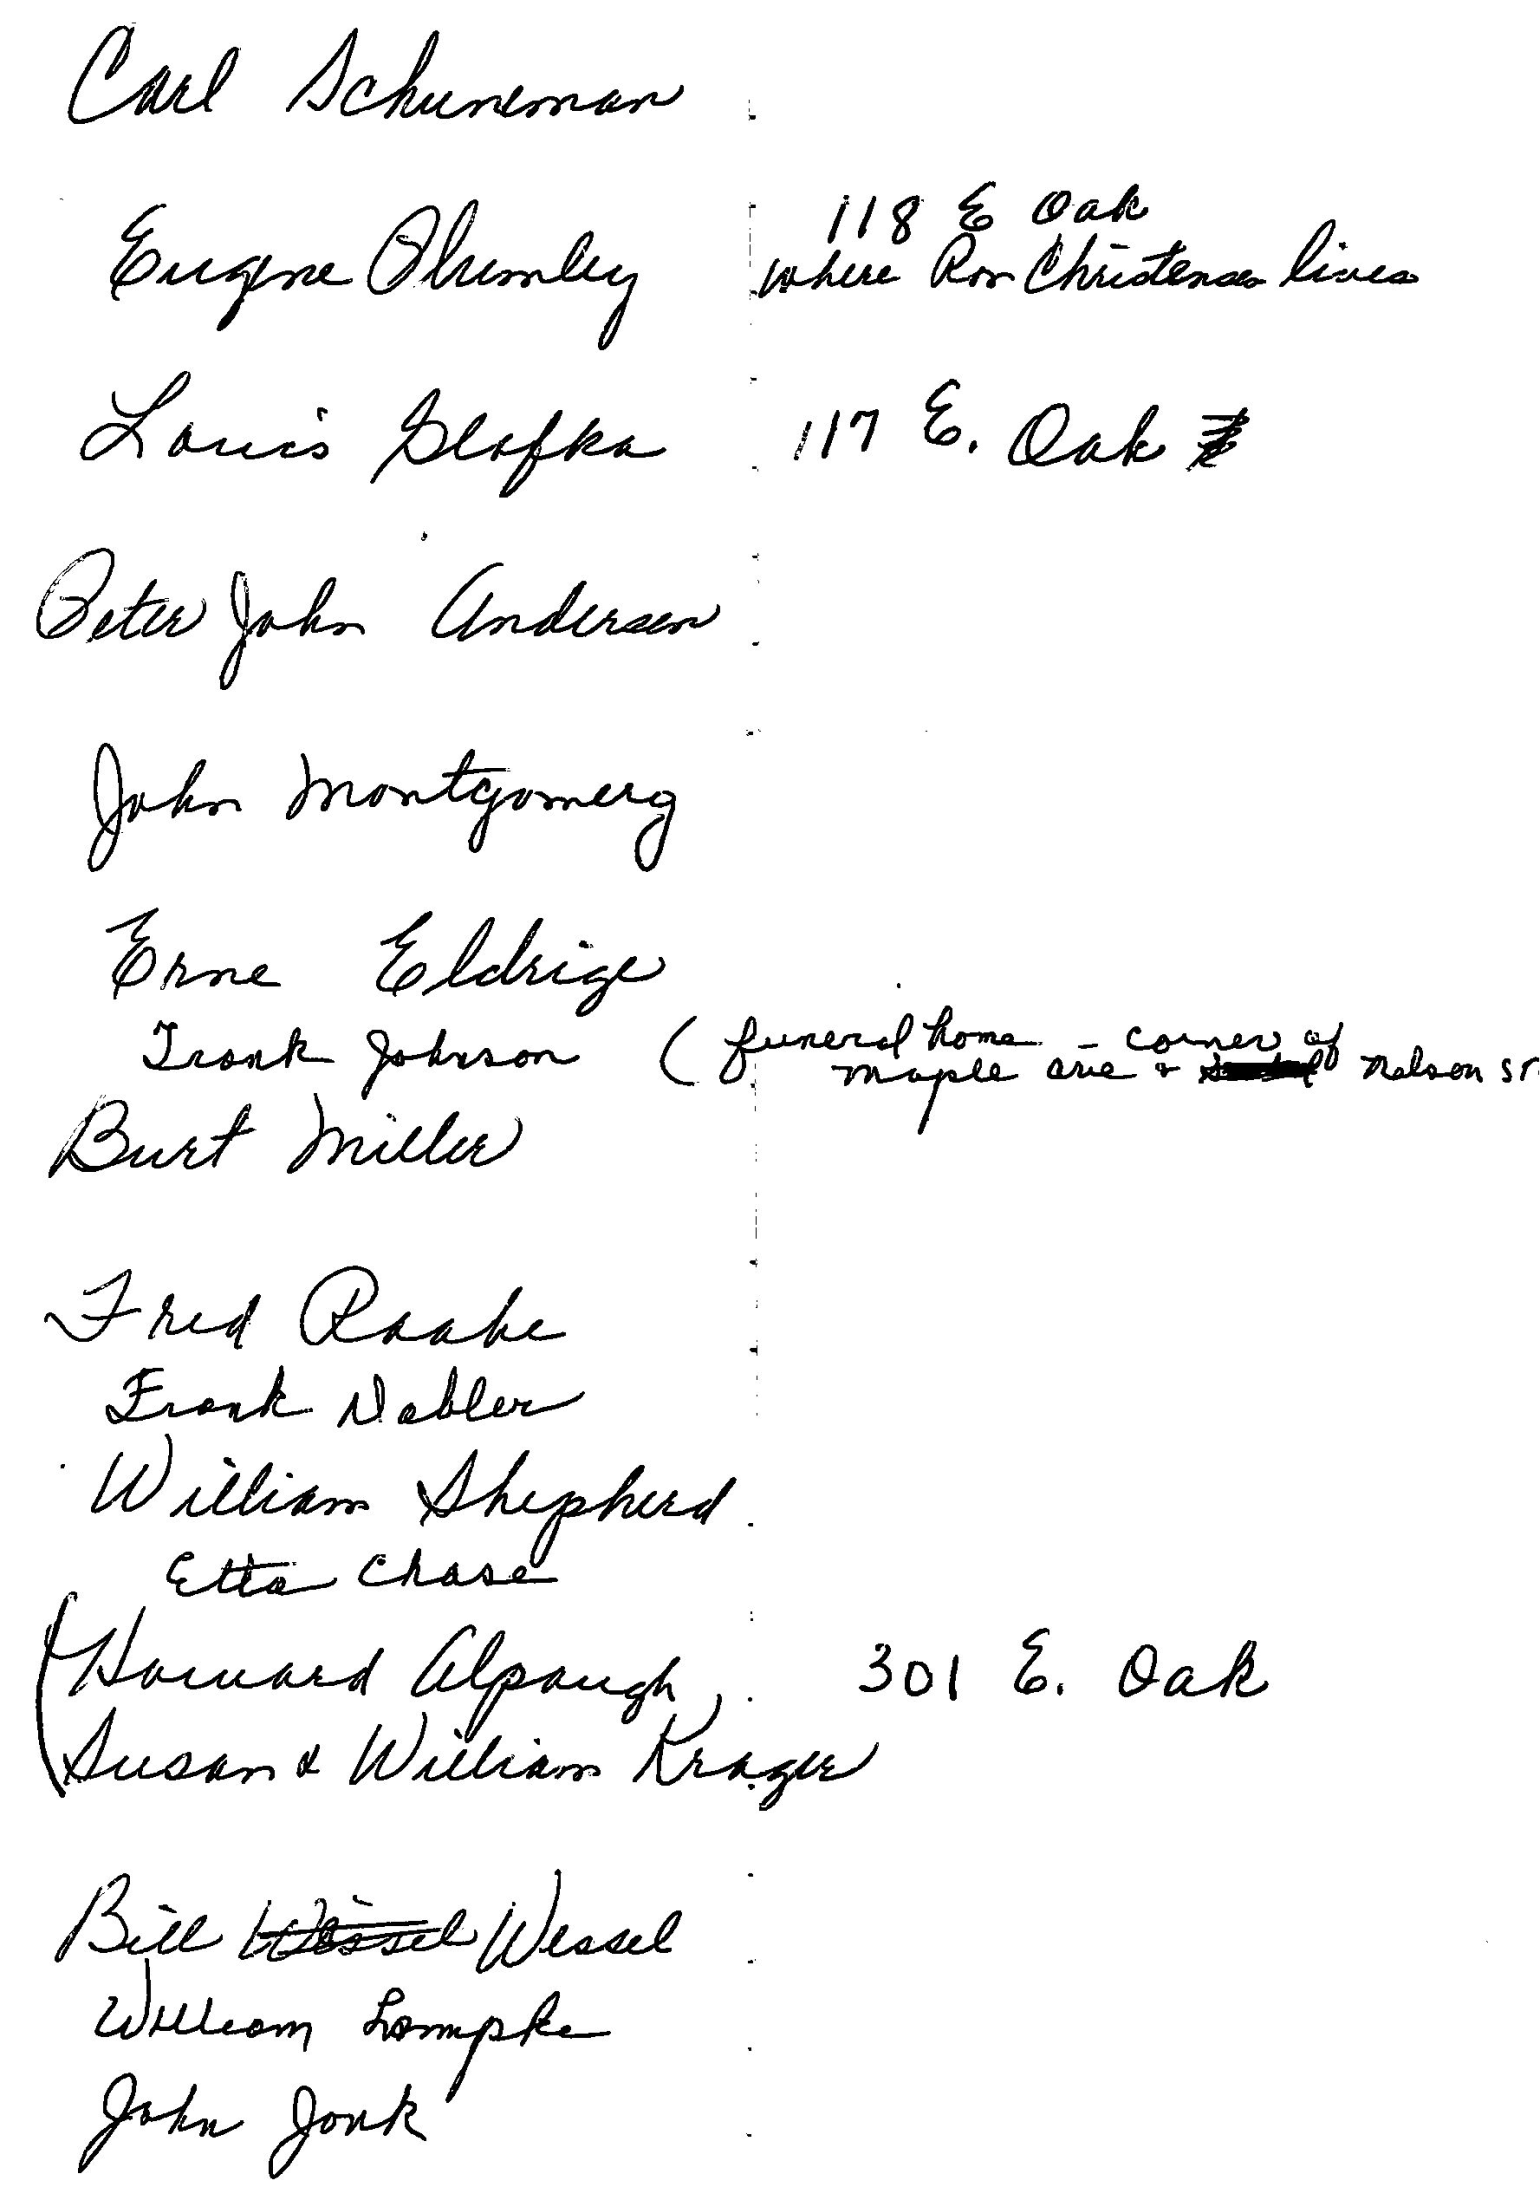 Carl Schuneman
118 E Oak
Eugene Plumley where Ron Christensen lives
Louis Slafka 117 E. Oak
Peter John Andersen
John Montgomery
Erne Eldrige
Frank Johnson (funeral home - corner of
Maple ave & Nelson St
Burt Miller
Fred Raabe
Frank Dabler
William Shepherd
Etta Chase
(Howard Alpaugh, 301 E. Oak
Susan & William Krager
Bill Wessel Wessel
William Lampke
John Jonk